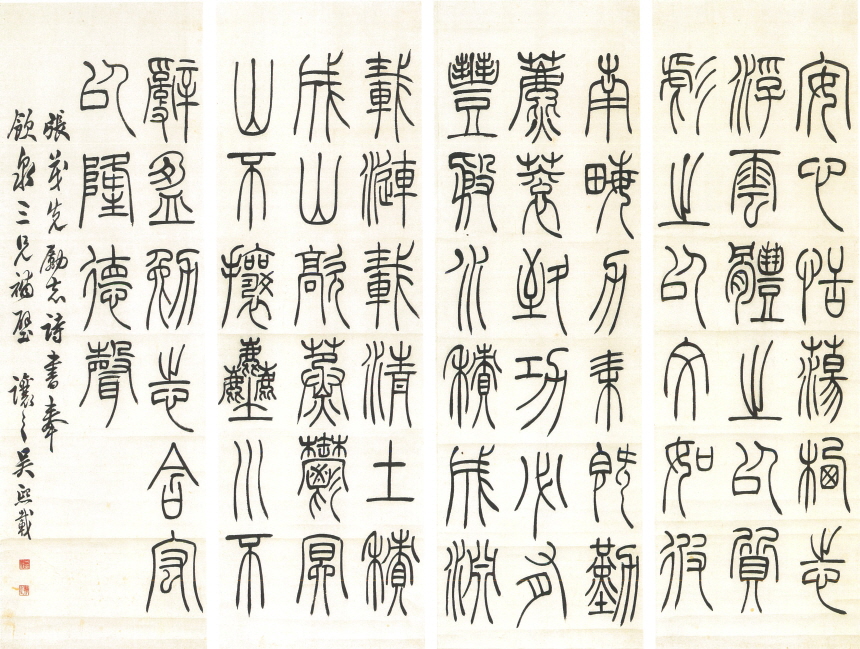 安心恬蕩栖志
浮雲體之以質
彪之以文如彼
南畮力耒既勤
藨蓘致功必有
豐殷水積成淵
載漣載清土積
成山歊蒸鬱冥
山不攘塵川不
辭盈勉志含宏
以隆德聲
張茂先勵志詩書奉
領泉三兄補壁 讓之吳熙載